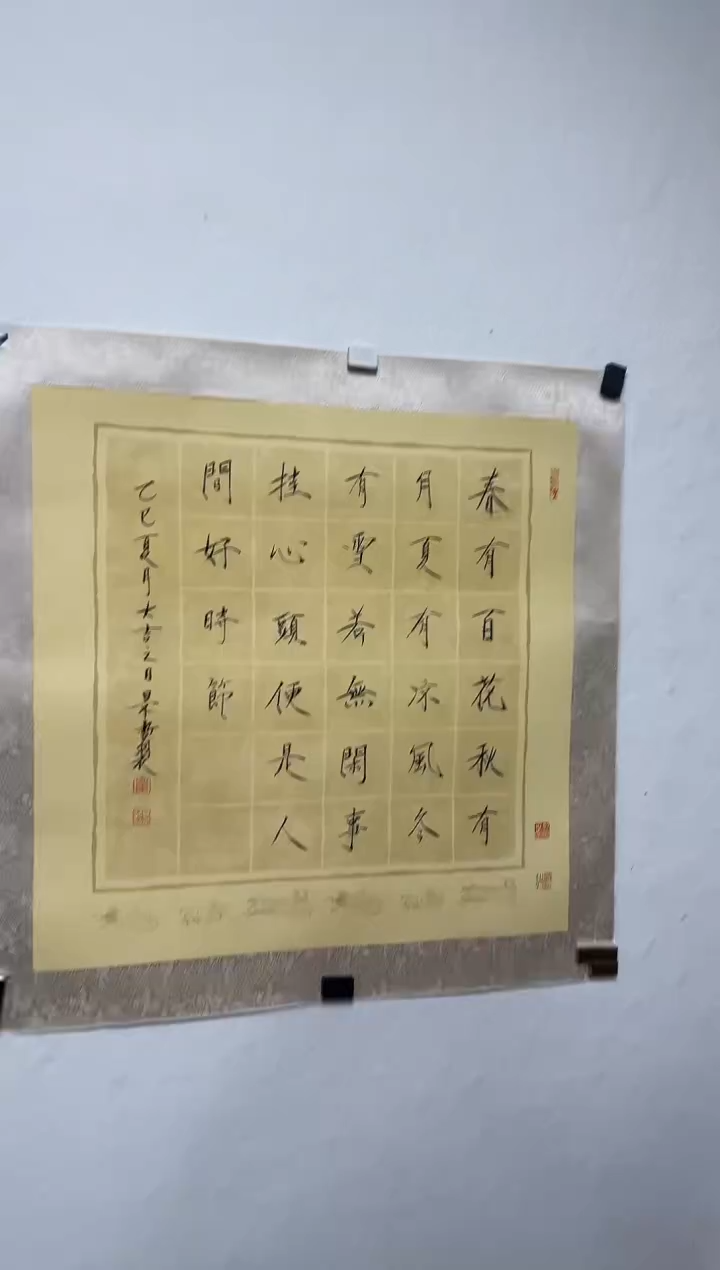 春有百花秋有
月夏有凉風冬
有雪若無閑事
挂心頭便是人
間好時節
乙巳夏月大吉之日